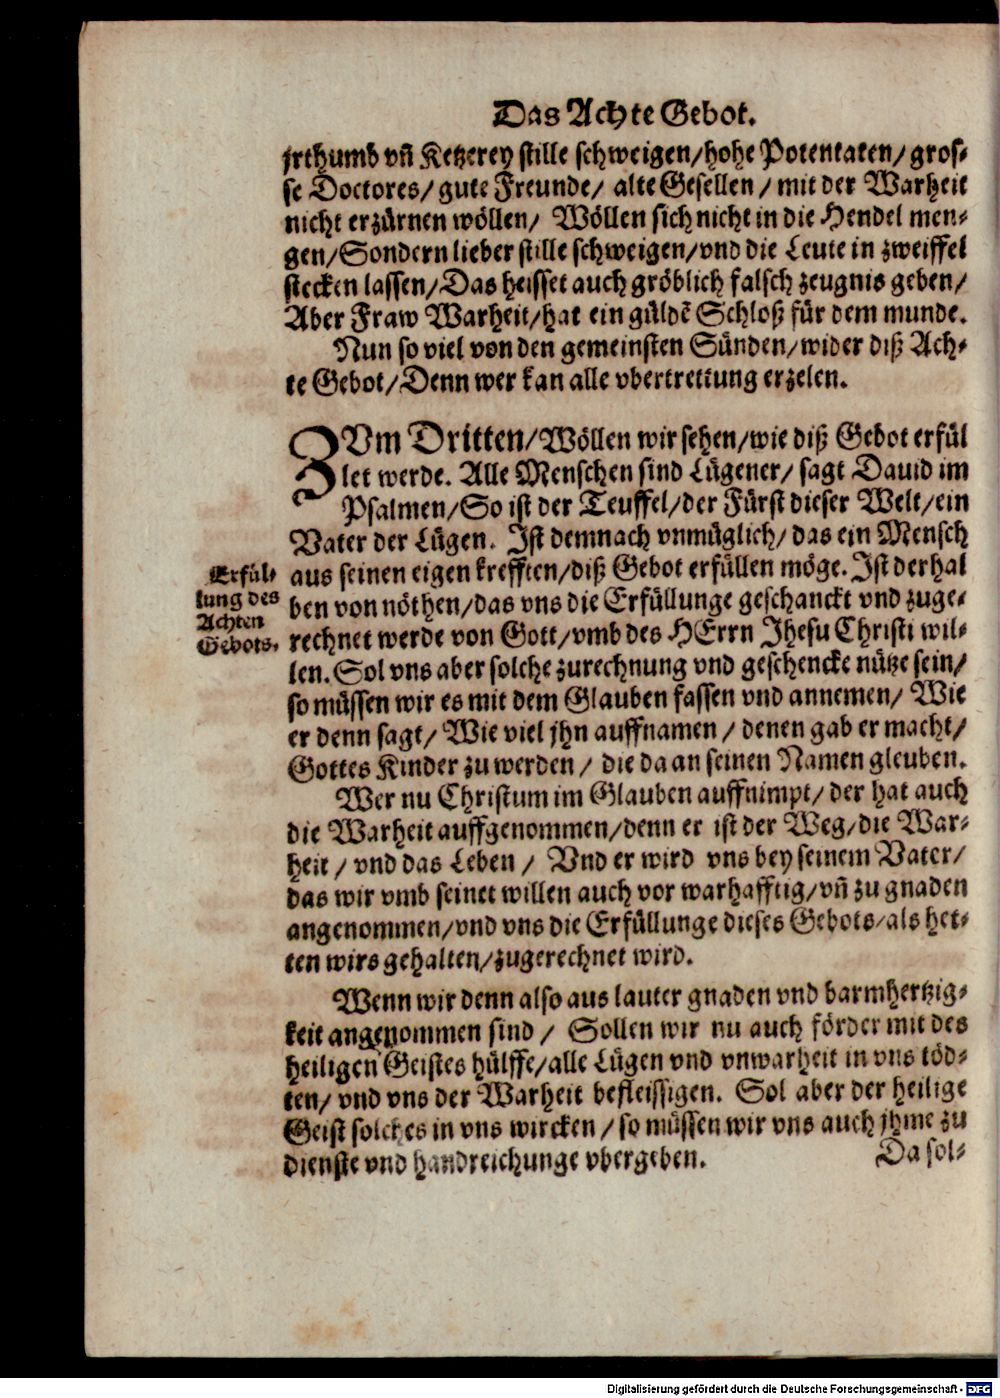 Das Achte Gebot.
jrthumb vñ Ketzerey stille schweigen/hohe Potentaten/ gros-
se Doctores/ gute Freunde/ alte Gesellen / mit der Warheit
nicht erzürnen wöllen/ Wöllen sich nicht in die Hendel men-
gen/Sondern lieber stille schweigen/vnd die Leute in zweiffel
stecken lassen/Das heisset auch gröblich falsch zeugnis geben/
Aber Fraw Warheit/hat ein güldē Schloß für dem munde.
Nun so viel von den gemeinsten Sünden/wider diß Ach-
te Gebot/Denn wer kan alle vbertrettung erzelen.
ZVm Dritten/Wöllen wir sehen/wie diß Gebot erfül
let werde. Alle Menschen sind Lügener/ sagt Dauid im
Psalmen/So ist der Teuffel/der Fürst dieser Welt/ein
Vater der Lügen. Ist demnach vnmüglich/ das ein Mensch
aus seinen eigen krefften/diß Gebot erfüllen möge. Ist derhal
ben von nöthen/das vns die Erfüllunge geschanckt vnd zuge-
rechnet werde von Gott/vmb des HErrn Jhesu Christi wil-
len. Sol vns aber solche zurechnung vnd geschencke nütze sein/
so müssen wir es mit dem Glauben fassen vnd annemen/ Wie
er denn sagt/ Wie viel jhn auffnamen / denen gab er macht/
Gottes Kinder zu werden / die da an seinen Namen gleuben.
Erfül-
lung des
Achten
Gebots.
Wer nu Christum im Glauben auffnimpt/ der hat auch
die Warheit auffgenommen/denn er ist der Weg/die War-
heit / vnd das Leben / Vnd er wird vns bey seinem Vater/
das wir vmb seinet willen auch vor warhafftig/vñ zu gnaden
angenommen/vnd vns die Erfüllunge dieses Gebots/als het-
ten wirs gehalten/zugerechnet wird.
Wenn wir denn also aus lauter gnaden vnd barmhertzig-
keit angenommen sind / Sollen wir nu auch förder mit des
heiligen Geistes hülffe/alle Lügen vnd vnwarheit in vns töd-
ten/ vnd vns der Warheit befleissigen. Sol aber der heilige
Geist solches in vns wircken / so müssen wir vns auch jhme zu
dienste vnd handreichunge vbergeben.
Da sol-
Digitalisierung gefördert durch die Deutsche Forschungsgemeinschaft - DFG